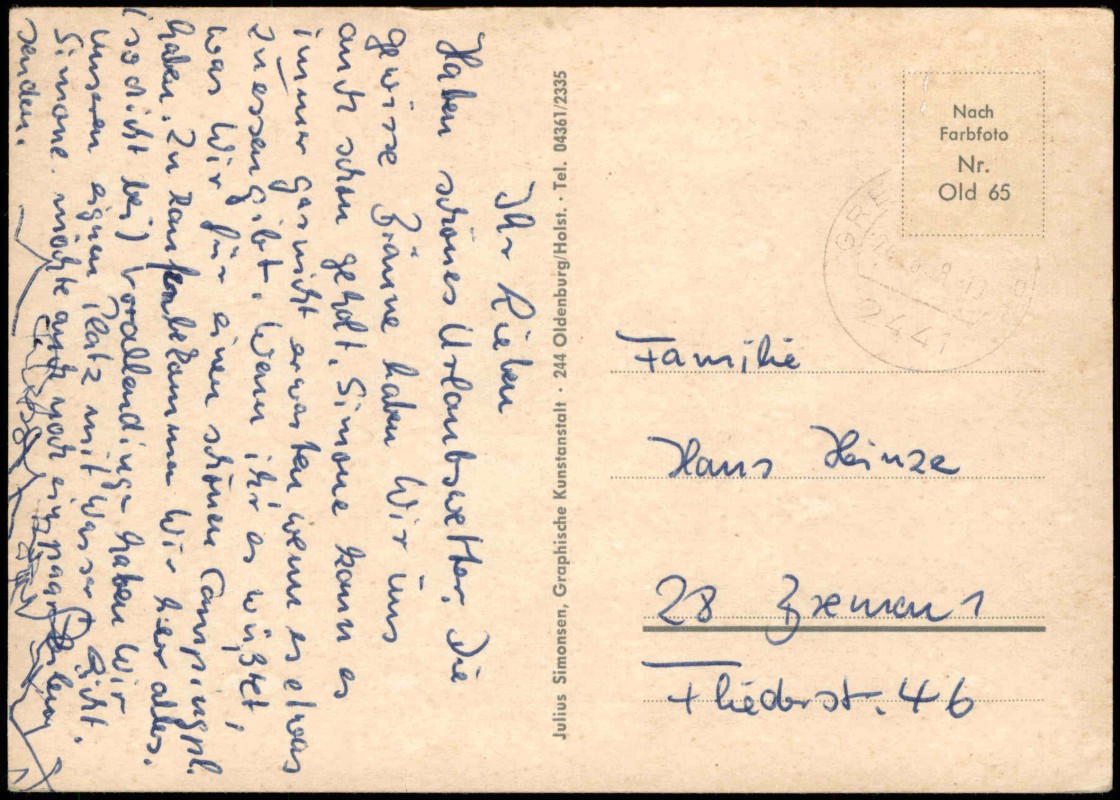 Ihr Lieben
Haben schönes Urlaubswetter. Die
gewisse Bräune haben Wir uns
auch schon geholt. Simone kann es
immer gar nicht erwarten wenn es etwas
zu essen gibt. Wenn ihr es wüßtet,
was Wir für einen schönen Campingpl.
haben. Zu kaufen bekommen Wir hier alles.
(so dicht bei) Vorallendingen haben Wir
unseren eignen Platz mit Wasser Licht.
Simone möchte auch noch ein paar Zeilen
senden.
Julius Simonsen, Graphische Kunstanstalt · 244 Oldenburg/Holst. · Tel. 04361/2335
Nach
Farbfoto
Nr.
Old 65
GRE
2441
Familie
Hans Heinze
28 Bremen 1
Fliederst. 46